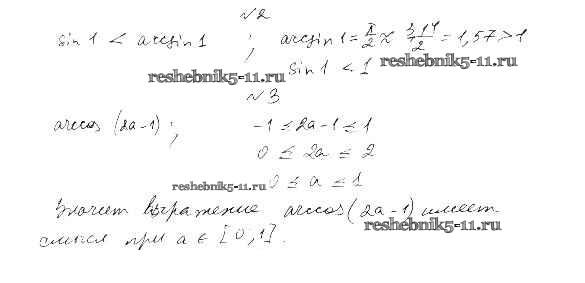 №2
sin 1 < arcsin 1 ; arcsin 1 = π/2 ≈ 3,14/2 = 1,57 > 1
reshebnik5-11.ru sin 1 < 1 reshebnik5-11.ru
№3
arccos (2a-1) ; -1 ≤ 2a-1 ≤ 1
0 ≤ 2a ≤ 2
reshebnik5-11.ru 0 ≤ a ≤ 1
Значит выражение arccos(2a-1) имеет
reshebnik5-11.ru
смысл при a ∈ [0,1].